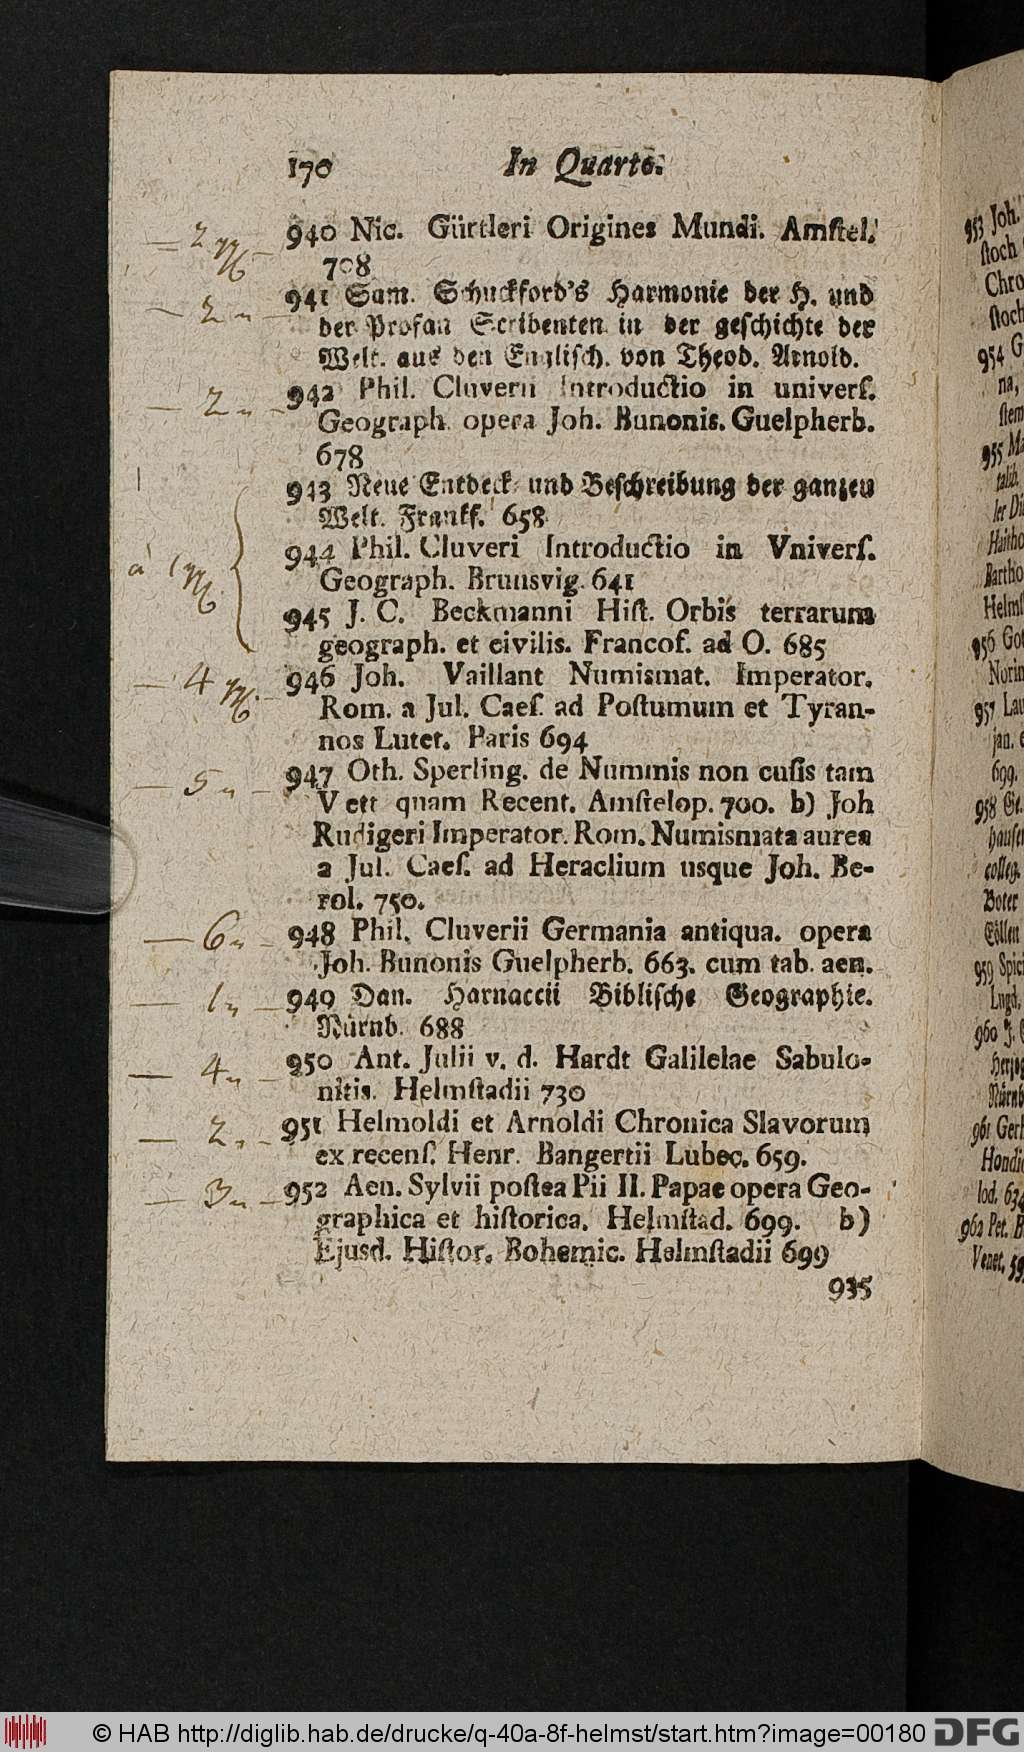 170 In Quarto.
940 Nic. Gürtleri Origines Mundi. Amſtel.
708
941 Sam. Schuckford's Harmonie der H. und
der Profan Scribenten in der geſchichte der
Welt. aus den Engliſch. von Theod. Arnold.
942 Phil. Cluverii Introductio in univerſ.
Geograph. opera Joh. Bunonis. Guelpherb.
678
943 Neue Entdeck. und Beſchreibung der ganzen
Welt. Franff. 658
944 Phil. Cluveri Introductio in Vniverſ.
Geograph. Brunsvig. 641
945 J. C. Beckmanni Hiſt. Orbis terrarum
geograph. et civilis. Francof. ad O. 685
946 Joh. Vaillant Numismat. Imperator.
Rom. a Jul. Caeſ. ad Poſtumum et Tyran-
nos Lutet. Paris 694
947 Oth. Sperling. de Nummis non cuſis tam
Vett quam Recent. Amſtelop. 700. b) Joh
Rudigeri Imperator. Rom. Numismata aurea
a Jul. Caeſ. ad Heraclium usque Joh. Be-
rol. 750.
948 Phil. Cluverii Germania antiqua. opera
Joh. Bunonis Guelpherb. 663. cum tab. aen.
949 Dan. Harnaccii Bibliſche Geographie.
Nürnb. 688
950 Ant. Julii v. d. Hardt Galilelae Sabulo-
nitis. Helmſtadii 730
951 Helmoldi et Arnoldi Chronica Slavorum
ex recenſ. Henr. Bangertii Lubec. 659.
952 Aen. Sylvii poſtea Pii II. Papae opera Geo-
graphica et hiſtorica. Helmſtad. 699. b)
Ejusd. Hiſtor. Bohemic. Helmſtadii 699
935
— 2
— 2
— 2
à 1
— 4
— 5
— 6
— 1
— 4
— 2
— 3
953 Joh.
ſtoch
Chro
ſtoch
954 G
na,
ſtem
955
talib.
ler
Haitho
Bartho
Helmſ
956
Norin
957
jan.
699.
958 Ge.
hauſen
colleg.
Boter
Cöllen
959 Spici
Lugd.
960 J.
Herzog
Nürnb
961 Gerh
Hondi
lod. 634
962 Pet. B
Venet. 59
© HAB http://diglib.hab.de/drucke/q-40a-8f-helmst/start.htm?image=00180 DFG